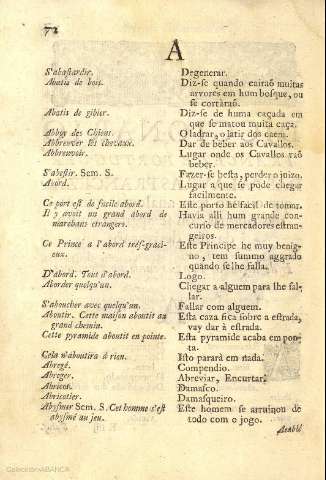 72
A
S'abastardir. Degenerar.
Abatis de bois. Diz-se quando cairaõ muitas
arvores em hum bosque, ou
se cortàraõ.
Abatis de gibier. Diz-se de huma caçada em
que se matou muita caça.
Abboy des Chiens. O ladrar, o latir dos caens.
Abbreuver les chevaux. Dar de beber aos Cavallos.
Abbreuvoir. Lugar onde os Cavallos vaõ
beber.
S'abestir. Sem. S. Fazer-se besta, perder o juizo.
Abord. Lugar a que se pòde chegar
facilmente.
Ce port est de facile abord. Este porto he facil de tomar.
Il y avoit un grand abord de Havia alli hum grande con-
marchans etrangers. curso de mercadores estran-
geiros.
Ce Prince a l'abord trés-graci- Este Principe he muy benig-
eux. no, tem summo aggrado
quando se lhe falla.
D'abord. Tout d'abord. Logo.
Aborder quelqu'un. Chegar a alguem para lhe fal-
lar.
S'aboucher avec quelqu'un. Fallar com alguem.
Aboutir. Cette maison aboutit au Esta caza fica sobre a estrada,
grand chemin. vay dar à estrada.
Cette pyramide aboutit en pointe. Esta pyramide acaba em pon-
ta.
Cela n'aboutira à rien. Isto parará em nada.
Abregé. Compendio.
Abreger. Abreviar, Encurtar.
Abricot. Damasco.
Abricotier. Damasqueiro.
Abysmer Sem. S. Cet homme s'est Este homem se arruinou de
abysmé au jeu. todo com o jogo.
ColecciónABANCA